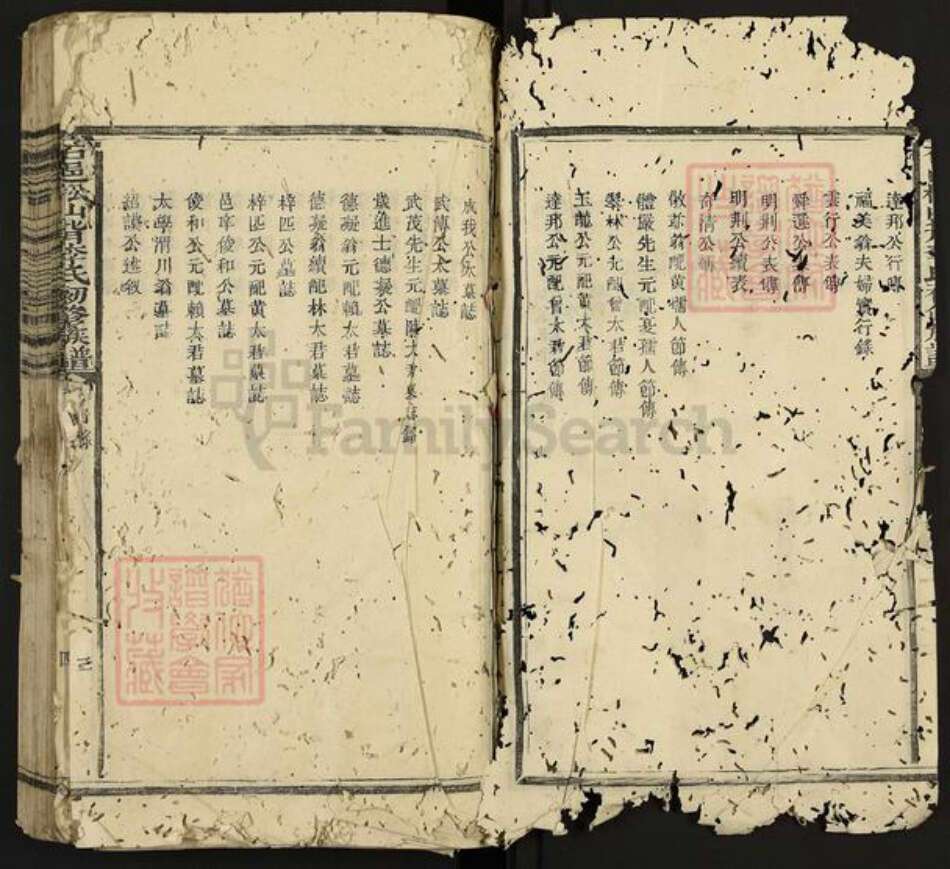 達邦公行
福美翁夫婦實行錄
雲行公表傳
舜選公傳
明荆公表傳
明荆公續表
奇清公傳
敬亭翁配黄孺人節傳
體嚴先生元配孺人節傳
翠林公元配曾太君節傳
玉龍公元配黄太君節傳
達邦公元配曾太君節傳
成我公墓誌
武傳公太墓誌
武茂先生元配陳太君墓誌錄
歲進士德凝公墓誌
德凝翁元配賴太君墓誌
德凝翁續配林太君墓誌
梓匹公墓誌
梓匹公元配黄太君墓誌
邑庠俊和公墓誌
俊和公元配賴太君墓誌
太學渭川翁墓誌
公述敘
松山氏初修族譜
FamilySearch